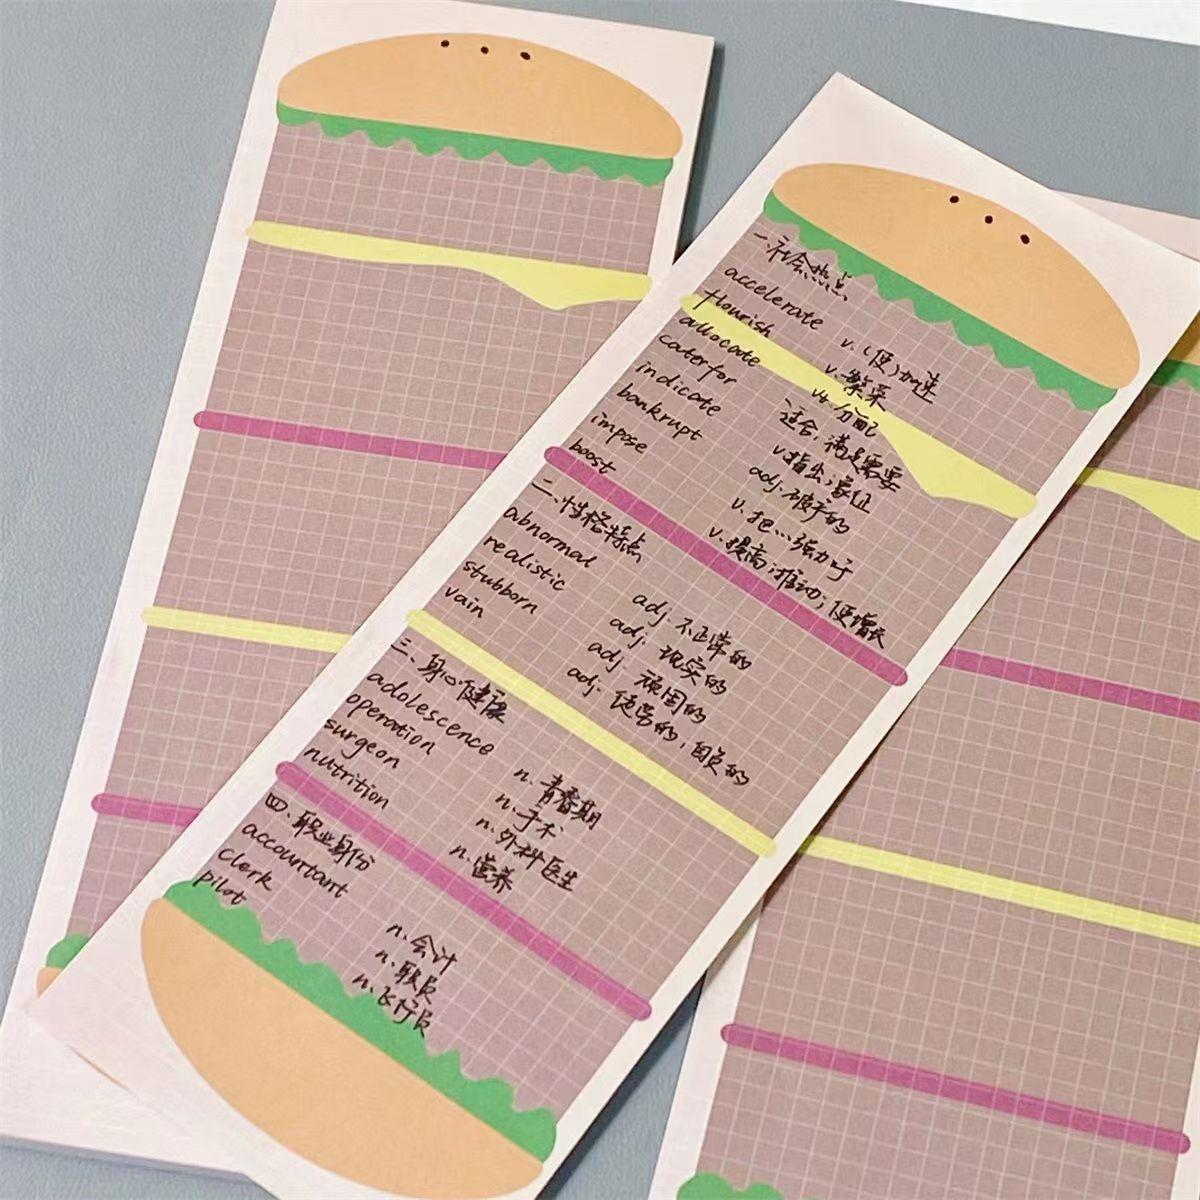 一.社会热点
accelerate v.(使)加速
flourish v.繁荣
allocate vt.分配
caterfor 适合,满足需要
indicate v.指出;象征
bankrupt adj.破产的
impose v.把…强加于
boost v.提高;推动;使增长
二、性格特点
abnormal adj.不正常的
realistic adj.现实的
stubborn adj 顽固的
vain adj.徒劳的,自负的
三、身心健康
adolescence n.青春期
operation n.手术
surgeon n.外科医生
nutrition n.营养
四、职业身份
accountant n.会计
clerk n.职员
pilot n.飞行员